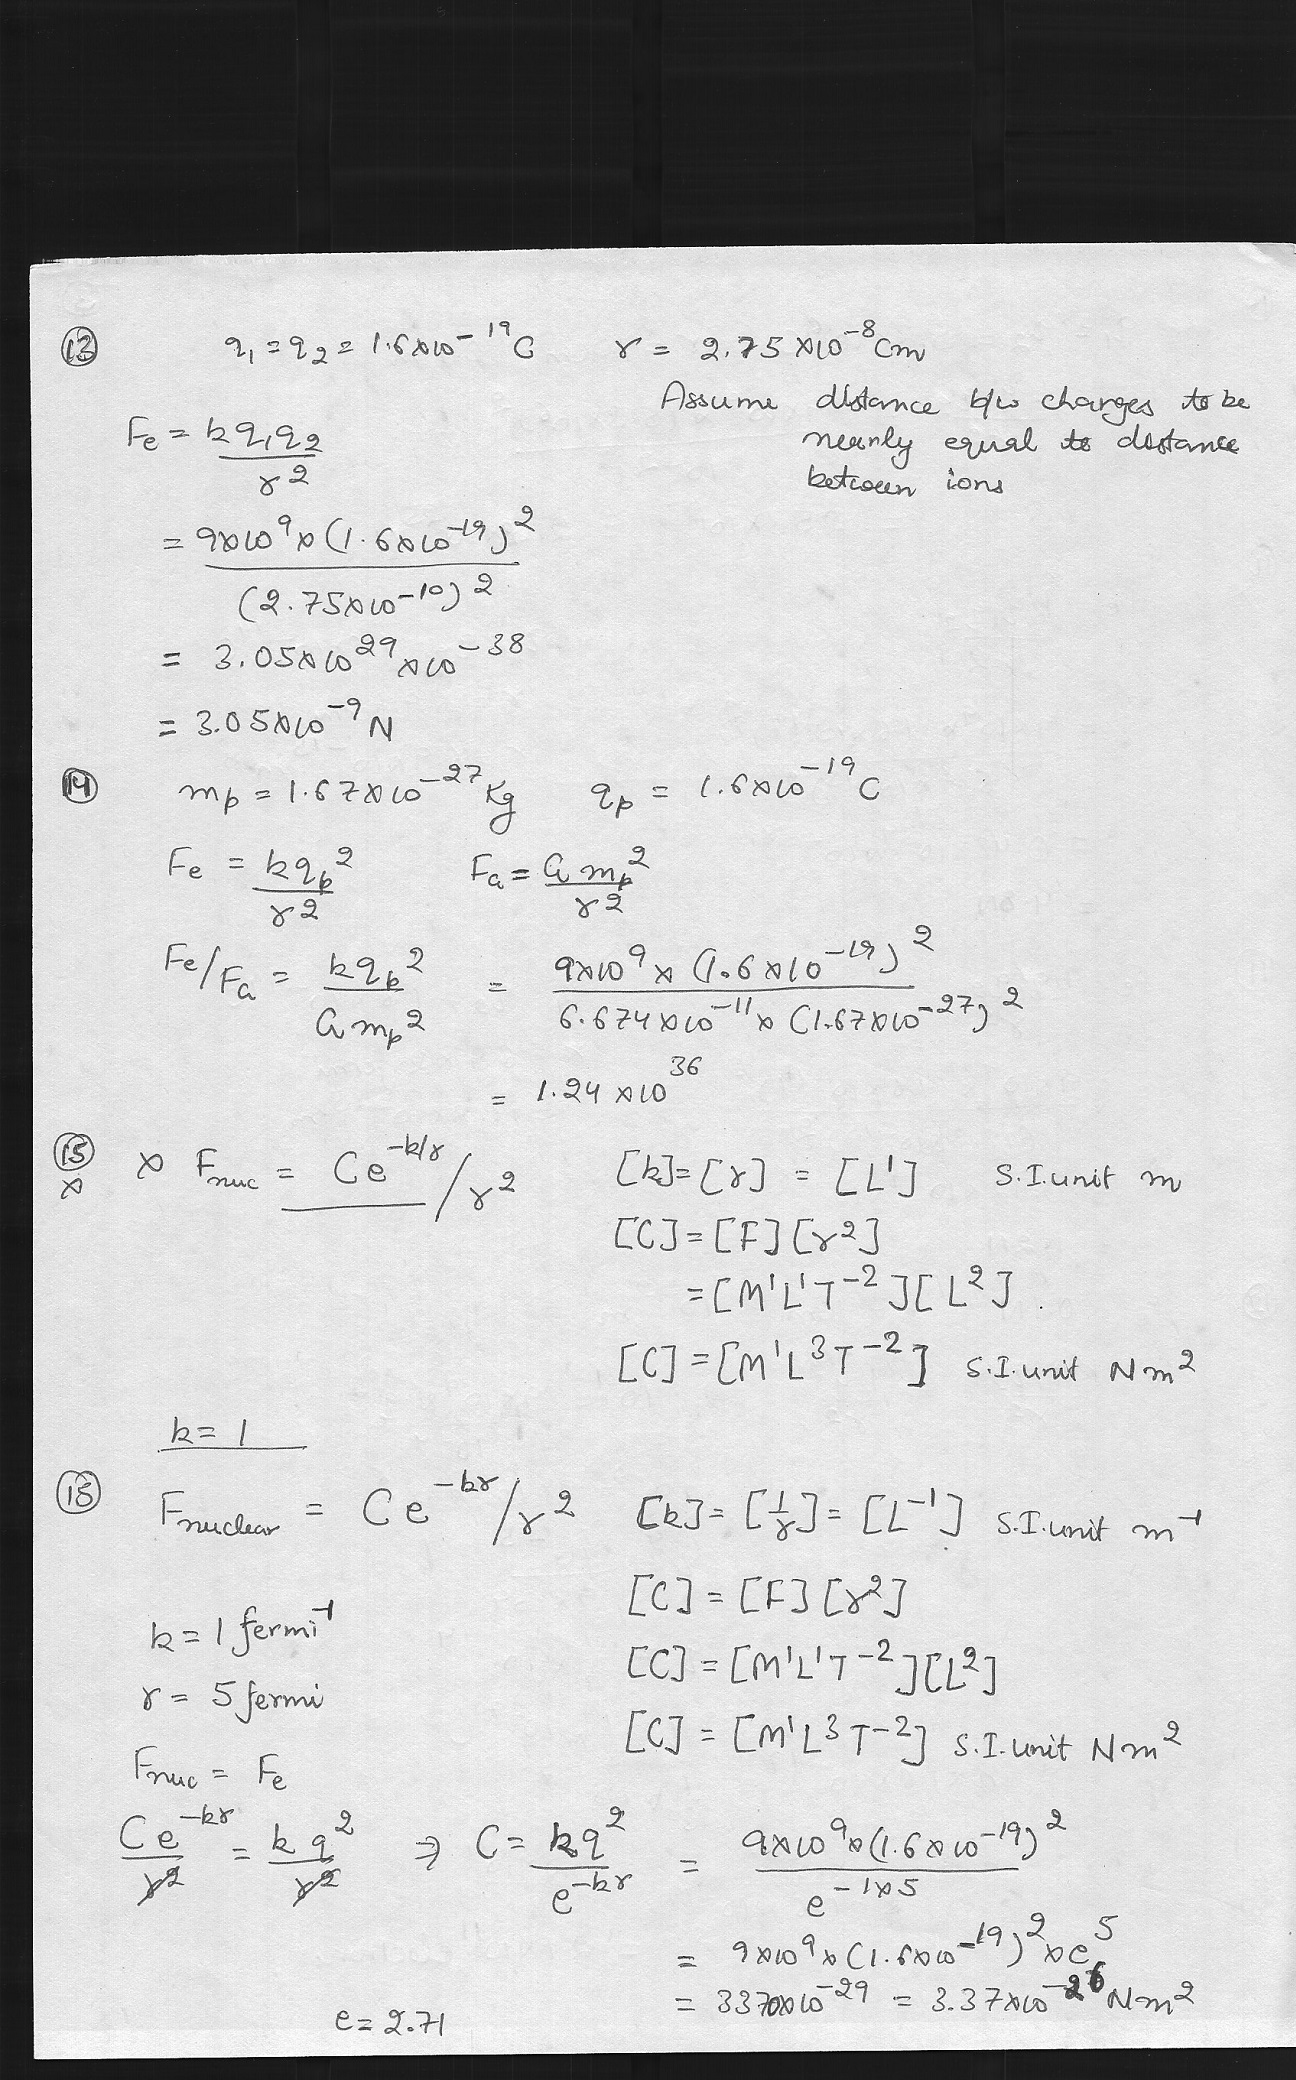 (13) q₁ = q₂ = 1.6×10⁻¹⁹C r = 2.75×10⁻⁸cm
Assume distance b/w charges to be
nearly equal to distance
between ions
Fe = kq₁q₂/r²
= 9×10⁹×(1.6×10⁻¹⁹)²/(2.75×10⁻¹⁰)²
= 3.05×10²⁹×10⁻³⁸
= 3.05×10⁻⁹N
(14) mp = 1.67×10⁻²⁷Kg qp = 1.6×10⁻¹⁹C
Fe = kqp²/r² FG = Gmp²/r²
Fe/FG = kqp²/Gmp² = 9×10⁹×(1.6×10⁻¹⁹)²/6.674×10⁻¹¹×(1.67×10⁻²⁷)²
= 1.24×10³⁶
(15) × × Fnuc = Ce^(-k/r)/r² [k]=[r] = [L¹] S.I. unit m
[C]=[F][r²]
=[M¹L¹T⁻²][L²].
[C]=[M¹L³T⁻²] S.I. unit Nm²
k = 1
(15) Fnuclear = Ce^(-kr)/r² [k]=[1/r]=[L⁻¹] S.I. unit m⁻¹
[C]=[F][r²]
k = 1 fermi⁻¹
[C]=[M¹L¹T⁻²][L²]
r = 5 fermi
[C]=[M¹L³T⁻²] S.I. unit Nm²
Fnuc = Fe
Ce^(-kr)/r² = kq²/r² ⇒ C = kq²/e^(-kr) = 9×10⁹×(1.6×10⁻¹⁹)²/e^(-1×5)
= 9×10⁹×(1.6×10⁻¹⁹)²×e⁵
= 3370×10⁻²⁹ = 3.37×10⁻²⁶ Nm²
e = 2.71